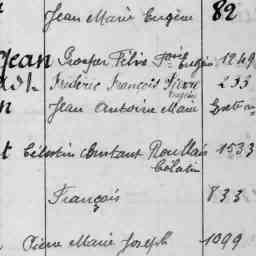 Jean Marie Eugène 82
Jean Prosper Félix Marie Eugène 1249
Frédéric François Pierre 233
Eugène
n Jean Antoine Marie
t Célestin Constant Roullais 1533
Célestin
François 833
Pierre Marie Joseph 1099